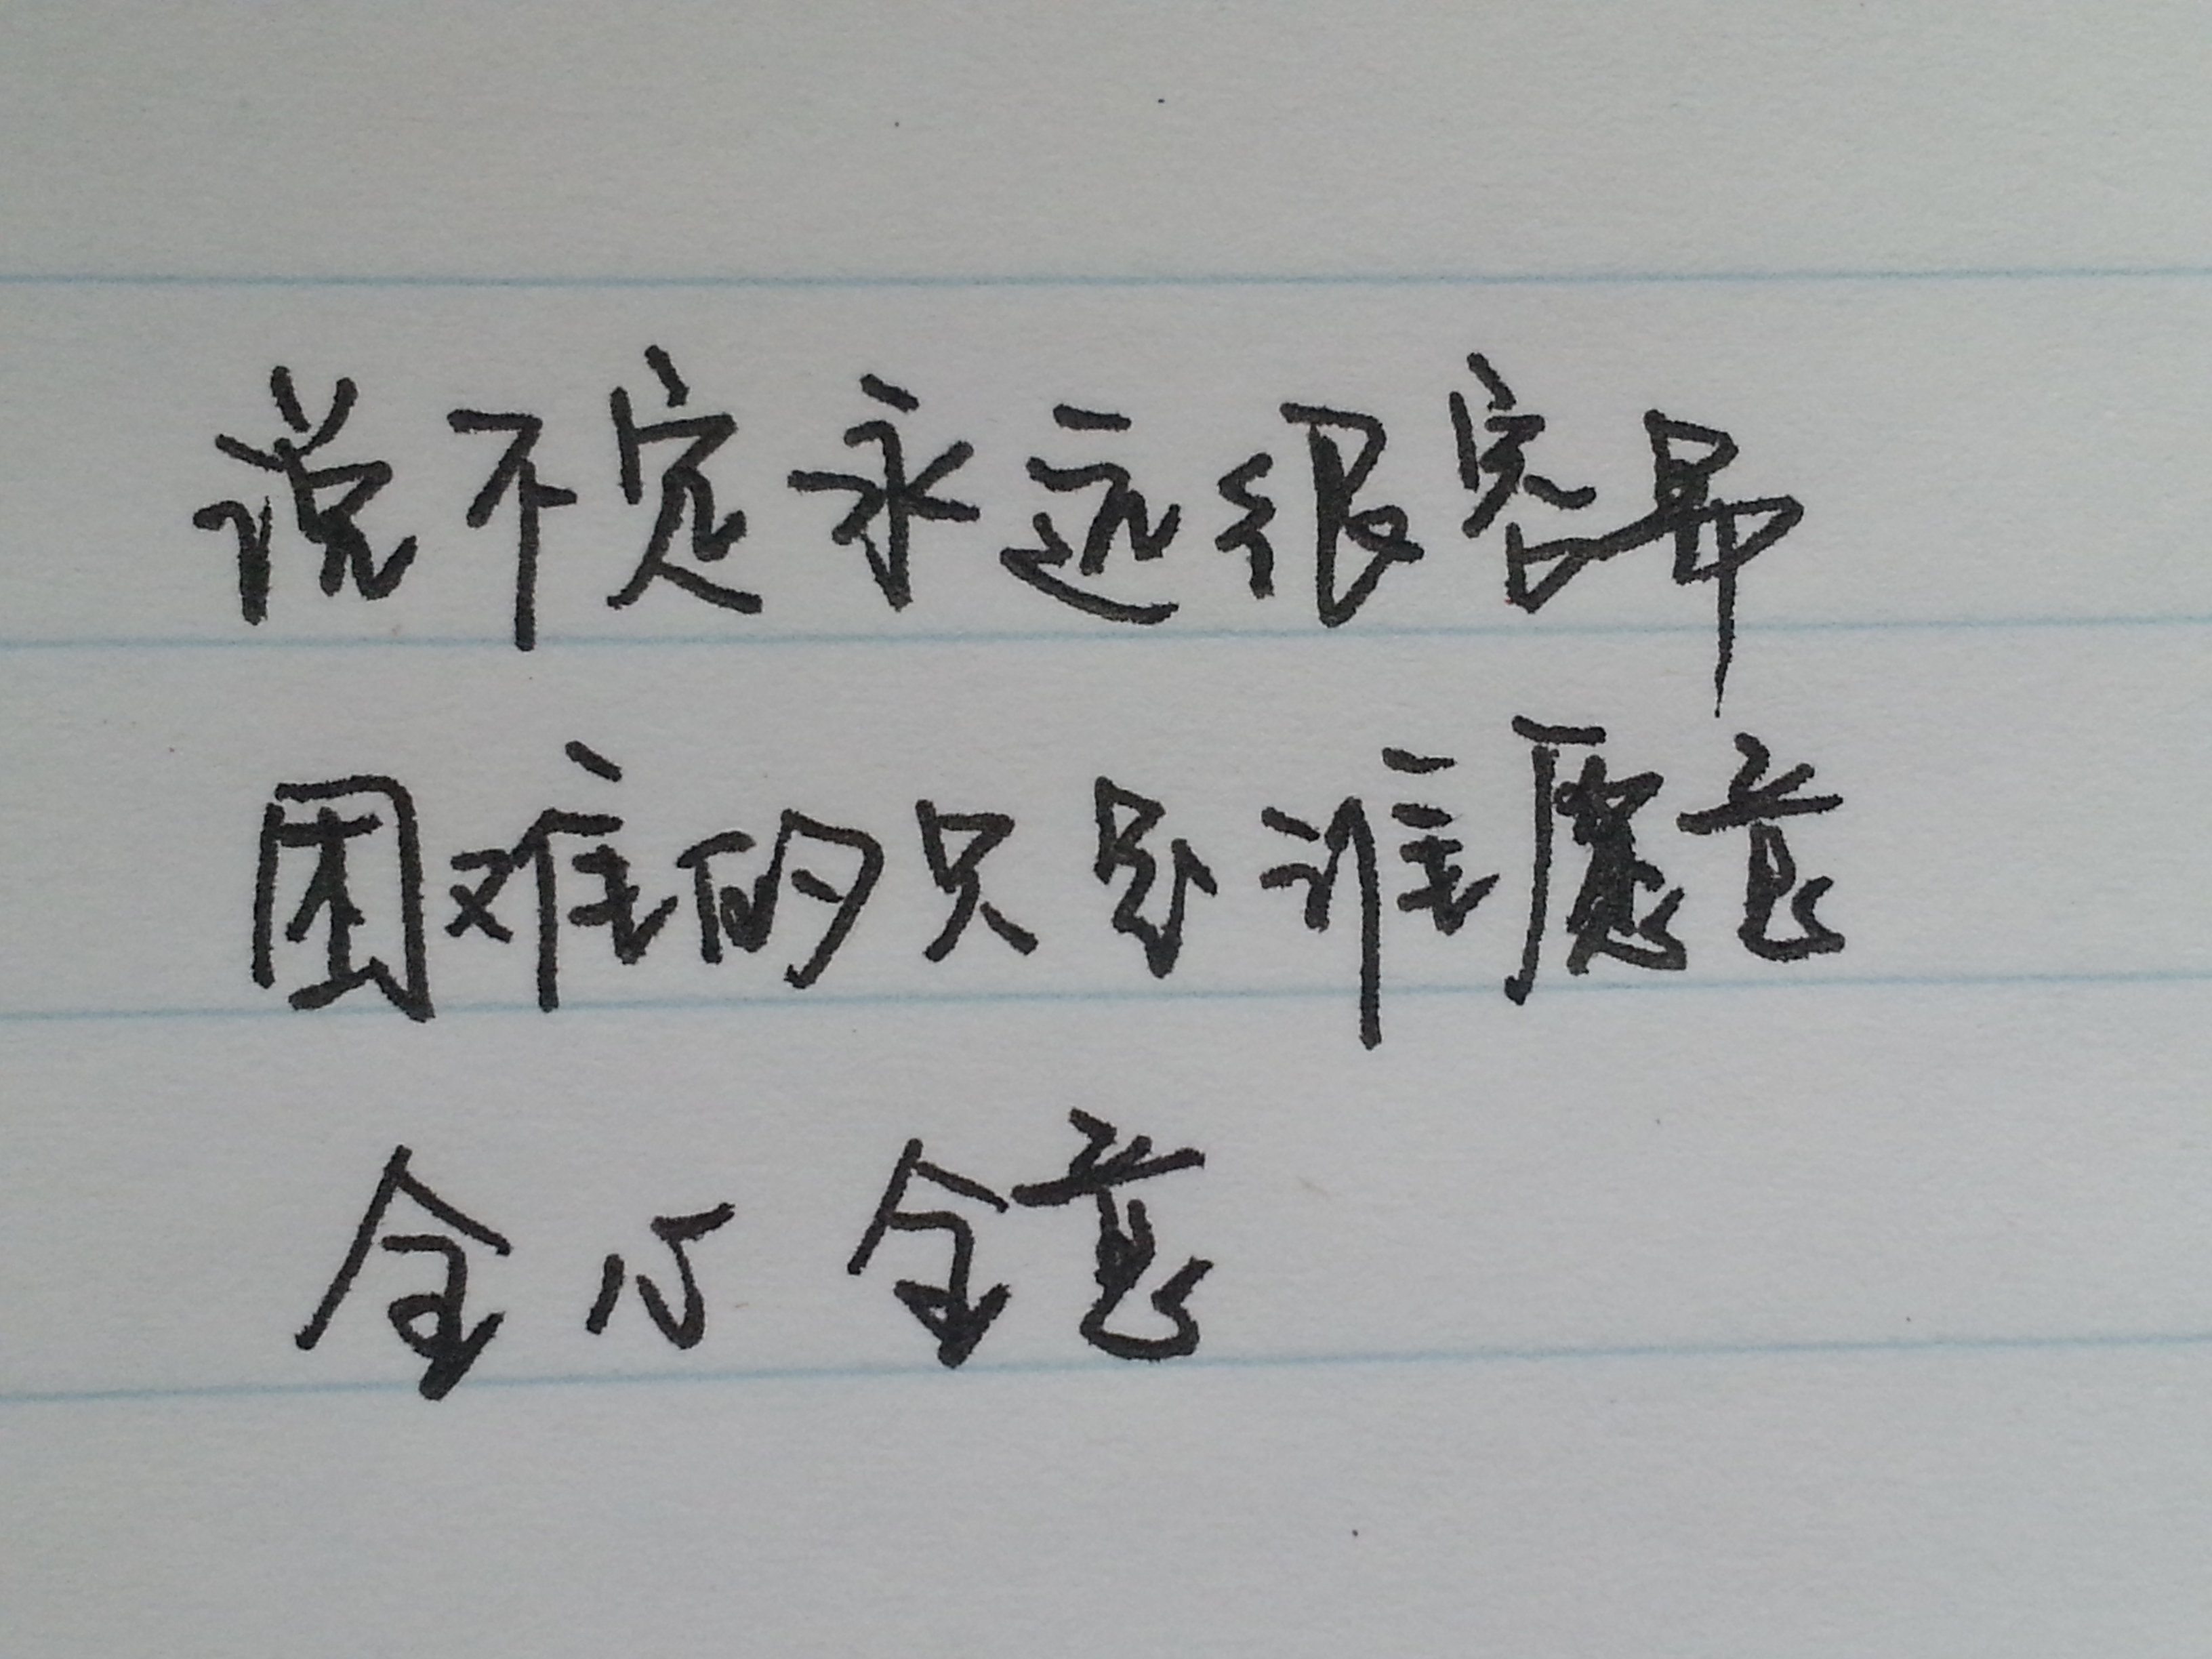 说不定永远很容易
困难的只是谁愿意
全心全意